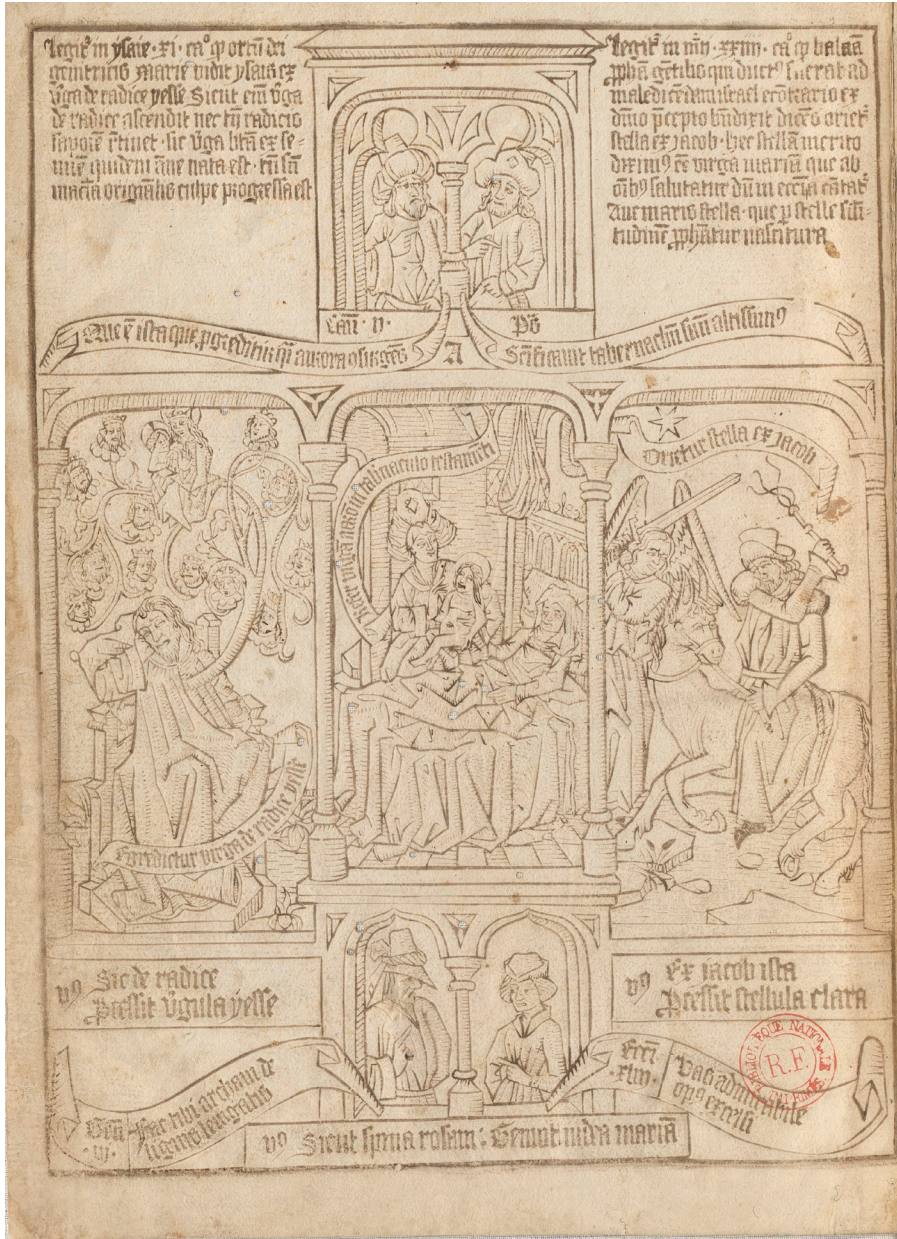 Legit᷑ in ysaie · xi · caº ꝙ ortū dei
genitricis marie vidit ysaias ex
v̄ga de radice yesse Sicut eī v̄ga
de radice ascendit nec tn̄ radicis
r̄tinet · sic v̄ga btā̄ ex se-
quidem āne nata est · tn̄ sn̄
macla origīalis culpe progressa est
Legit᷑ in nūi · xxiiii · caº ꝙ balaā
ꝓphā gētilis qui ductꝰ fuerat ad
maledicēdam israel ecōtrario ex
dīuo p̄cepto bn̄dixit dicēs oriet᷑
stella ex jacob · hec stellā merito
diximꝰ ēē virgā mariā que ab
oībꝰ salutatur dū in ecc̄ia cātat᷑
Aue maris stella · que ꝑ stelle sili-
tudinē ꝓphātur nascitura
Cāti · vi · Pš
Que ē ista que ꝓgreditur q̄i aurora ɔsurgēs A Sc̄ificauit tabernaclm̄ suū altissimꝰ
Fiicet uirga aarō in tab̄naculo testamēti
Orietur stella ex jacob
Egredietur virga de radice yesse
vꝰ Sic de radice
ꝓcessit v̄gula yesse
vꝰ Ex jacob ista
ꝓcessit stellula clara
Gen̄ · vi ·
Fac tibi archam de
lignis leuigatis
Ecc̄i · xliii ·
Vas admirabile
opꝰ excelsi
vꝰ Sicut spina rosam : Genuit iudea mariā
BIBLIOTHÈQUE NATIONALE
R.F.
IMPRIMÉS